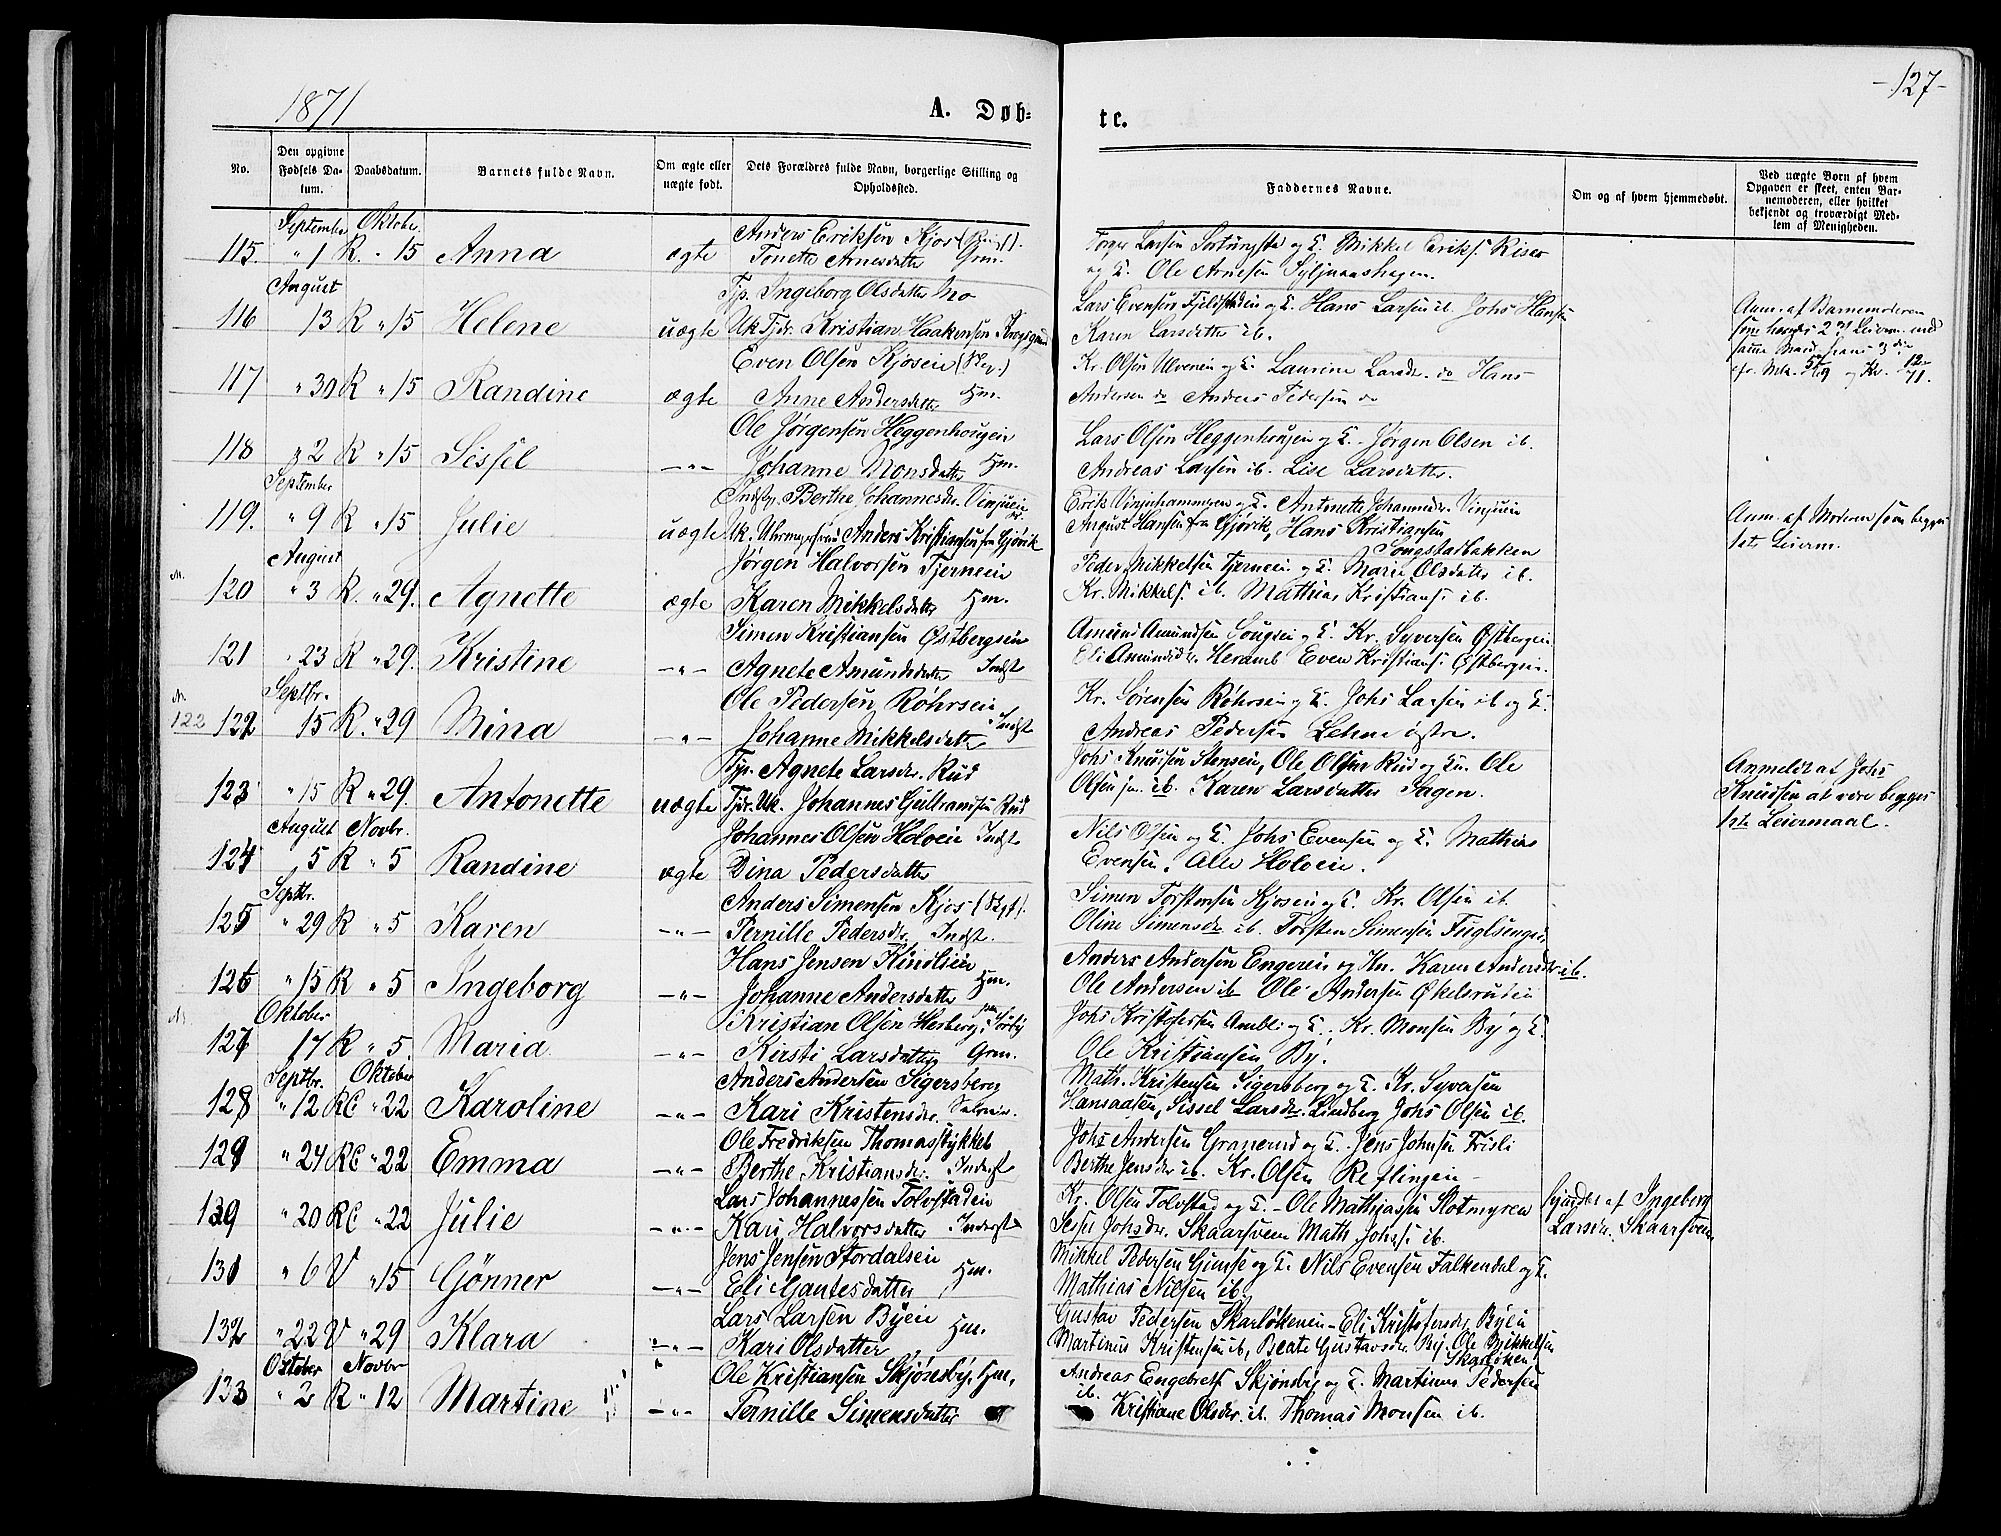 1871
-127-
A. Døb-
te.
No.
Den opgivne Fødsels Datum.
Daabsdatum.
Barnets fulde Navn.
Om ægte eller uægte født.
Dets Forældres fulde Navn, borgerlige Stilling og Opholdssted.
Faddernes Navne.
Om og af hvem hjemmedøbt.
Ved uægte Børn af hvem Opgaven er skeet, enten Barnemoderen, eller hvilket bekjendt og troværdigt Medlem af Menigheden.
September Oktober.
Anders Eriksen Kjos
115. " 1 R. " 15 Anna ægte Tonette Arnesdatter Grm.
Torger Larsen og E. Mikkel Eriks. Riser
og E. Ole Arnesen Syljuaashagen.
August
Tjp. Ingeborg Olsdatter Mo
116 13 R " 15 Helene uægte Uk. Tjdr. Kristian Haakensen
Lars Evensen Fjeldstadein og E. Hans Larsen ib. Johs Hansen
Karen Larsdatter ib.
Anm. af Barnemoderen
Even Olsen Kjosein
117 " 30 R " 15 Randine ægte Anne Andersdatter Hm.
Kr. Olsen Ulvenein og E. Laurine Larsdr. do Hans
Andersen do Anders Pedersen do
Ole Jørgensen Heggenhougein
118 " 2 R " 15 Sissil -"- Johanne Monsdatter Hm.
Lars Olsen Heggenhougen og E. Jørgen Olsen ib.
Andreas Larsen ib. Lise Larsdatter.
September
Indstp. Berthe Johannesdr. Vinjuein
119. " 9 R " 15 Julie uægte Uk. Anders Kristiansen fra Gjøvik
og E. Antonette Johannesdr. Vinjuein
August Hansen fra Gjøvik, Hans Kristiansen
Songstadbakken
Anm. af Moderen som begges
1ste Leierm.
August
Jørgen Halvorsen Tjernein
120 " 3 R. " 29. Agnette ægte Karen Mikkelsdatter Hm.
Peder Mikkelsen Tjernein og E. Marie Olsdatter ib.
Kr. Mikkels. ib. Mathias Kristians. ib.
Simen Kristiansen Østbergein
121 " 23 R " 29. Kristine -"- Agnete Amundsdatter Indst
Amund Amundsen og E. Kr. Syversen Østbergein
Eli Amundsdr. Heramb Even Kristians. Østbergein.
Septbr.
Ole Pedersen Røhrsein
122 122 15 R. " 29 Mina -"- Johanne Mikkelsdatter Indst
Kr. Sørensen Røhrsein og E. Johs Larsen ib og E.
Andreas Pedersen Lehne østre.
Tjp. Agnete Larsdr. Rud
123 " 15 R " 29. Antonette uægte Tjdr. Uk. Johannes Gulbransen Rud
Johs Knudsen Stensein, Ole Olsen Rud og Kn. Ole
Olsen ib. Karen Larsdatter Hagen.
Anmeldt af Johs
Knudsen at være begges
1ste Leiermaal.
August Novbr.
Johannes Olsen Holvein Indst
124 " 5 R " 5 Randine ægte Dina Pedersdatter
Nils Olsen og E. Johs Evensen og E. Mathias
Evensen. Alle Holvein.
Septbr.
Anders Simensen Kjos
125 " 29 R " 5 Karen -"- Pernille Pedersdr. Indst.
Simen Torstensen Kjosein og E. Kr. Olsen ib.
Oline Simensdr ib. Torsten Simensen
Hans Jensen
126 " 15 R " 5 Ingeborg -"- Johanne Andersdatter Hm.
Anders Andersen Engerein og Kn. Karen Andersdr ib.
Ole Andersen ib Ole Andersen Økelsrudein
Oktober
Kristian Olsen Hesberg,
127 17 R " 5. Maria -"- Kirsti Larsdatter Grm.
Johs Kristofersen Ambli og E., Kr. Monsen By og E.
Ole Kristiansen By.
Septbr. Oktober
Anders Andersen Sigersberg
128 " 12 RC " 22 Karoline -"- Kari Kristensdr.
Math. Kristensen Sigersberg og E. Kr. Syversen
Hansaasen, Sissel Larsdr. Lindberg Johs Olsen ib.
Ole Fredriksen Thomasstykket
129 " 24 RC " 22 Emma -"- Berthe Kristiansdr. Inderst
Johs Andersen Granerud og E. Jens Johnsen Frisli
Berthe Jensdr ib. Kr. Olsen Reflingein
Lars Johannessen Tolvstadein
130 " 20 RC " 22 Julie -"- Kari Halvorsdatter Inderst
Kr. Olsen Tolvstad og E. Ole Mathiassen Slotmyren
Johsdr. Skaarsveen Math. Johs. ib.
hjmdbt af Ingeborg
Larsdr. Skaarsveen
Jens Jensen Stordalsein
131 " 6 V " 15 Gønner -"- Eli Gautesdatter Hm.
Mikkel Pedersen Gimse og E. Nils Evensen Falkendal og E.
Mathias Nilsen ib.
Lars Larsen Byein
132 " 22 V " 29 Klara -"- Kari Olsdatter Hm.
Gustav Pedersen Skarløkenein Eli Kristofersdr Byein
Martinus Kristensen ib, Beate Gustavsdr. By, Ole Mikkelsen
Skarløken
Oktober Novbr
Ole Kristiansen Skjønsby, Hm.
133 " 2 R " 12 Martine -"- Pernille Simensdatter
Andreas Engebrets Skjønsby og E. Martinus Pedersen
ib. Kristiane Olsdr. ib. Thomas Monsen ib.